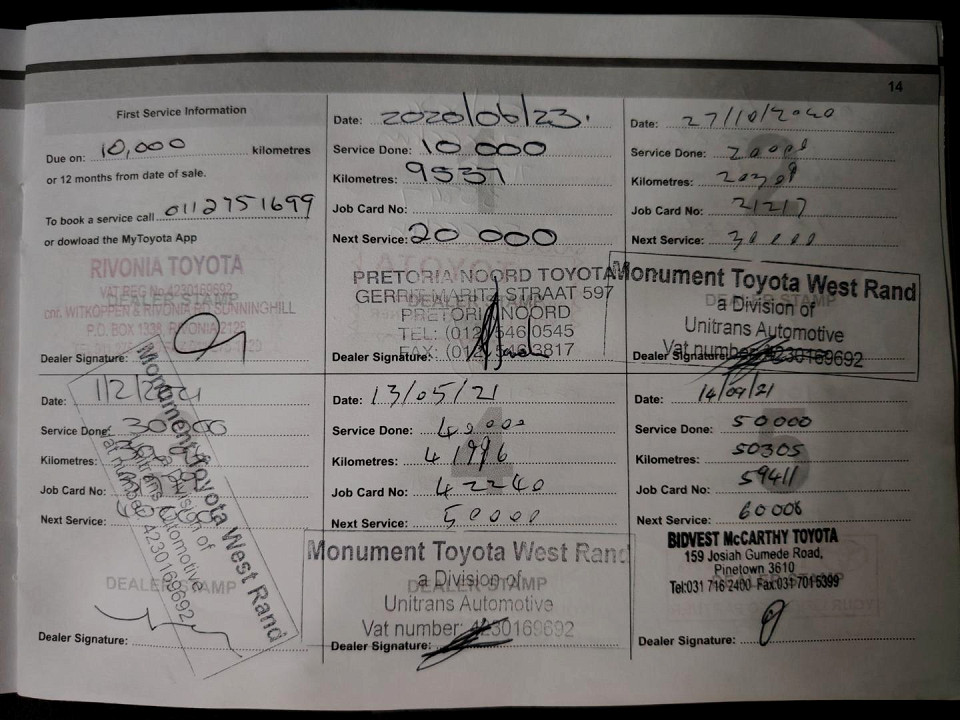 14
First Service Information
Due on: 10,000 kilometres
or 12 months from date of sale.
To book a service call 0112751699
or dowload the MyToyota App
RIVONIA TOYOTA
VAT REG No.4230169692
DEALER STAMP
cnr. WITKOPPEN & RIVONIA RD SUNNINGHILL
P.O. BOX 1338, RIVONIA 2128
Dealer Signature:
Date: 2020/06/23.
Service Done: 10 000
Kilometres: 9537
Job Card No:
Next Service: 20 000
PRETORIA NOORD TOYOTA
GERRIT MARITZ STRAAT 597
DEALER STAMP
PRETORIA NOORD
TEL: (012) 546 0545
FAX: (012) 546 3817
Dealer Signature:
Date: 27/10/2020
Service Done: 20000
Kilometres:
Job Card No: 21217
Next Service: 30000
Monument Toyota West Rand
DEALER STAMP
a Division of
Unitrans Automotive
Vat number: 4230169692
Dealer Signature:
Date: 1/2/2021
Service Done: 30000
Kilometres:
Job Card No:
Next Service:
Monument Toyota West Rand
a Division of
Unitrans Automotive
Vat number: 4230169692
DEALER STAMP
Dealer Signature:
Date: 13/05/21
Service Done: 40000
Kilometres: 41996
Job Card No: 42240
Next Service: 50000
4
Monument Toyota West Rand
a Division of
DEALER STAMP
Unitrans Automotive
Vat number: 4230169692
Dealer Signature:
Date: 14/09/21
Service Done: 50000
Kilometres: 50305
Job Card No: 59411
Next Service: 60000
5
BIDVEST McCARTHY TOYOTA
159 Josiah Gumede Road,
Pinetown 3610
Tel:031 716 2400 Fax:031 7015399
DEALER STAMP
Dealer Signature: